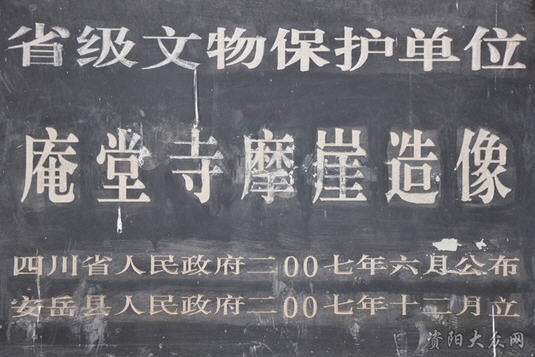 省级文物保护单位
庵堂寺摩崖造像
四川省人民政府二00七年六月公布
安岳县人民政府二00七年十二月立
资阳大众网